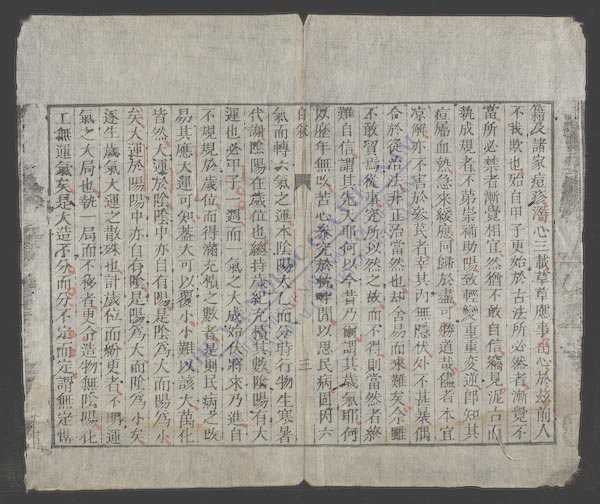 籍及諸家痘疹潛心三載草草應事留心於兹前人
不我欺也殆自甲子更始於古法所必然者漸覺不
當所必禁者漸覺相宜然猶不敢自信竊見泥古而
執成規者不弟崇補助陽致輕變重重變逆卽知其
痘屬血熱急來綾應同歸於盡可勝道哉僅者本宜
凉解亦不害於桼芪者幸其内無隱伏外不甚暴偶
合於從治法升正治當然也却舍易而來難矣余雖
不敢貿焉從事究所以然之故而不得則當然者終
難自信謂其先天耶何以今昔乃爾謂其歲氣耶何
以歷年無改苦心叅究於帆 間以思民病固因六
自敘
三
氣而轉六氣之運本陰陽太乙而分時行物生寒暑
代謝陰陽在歲位也總持歲紀充積其數陰陽有大
運也必甲子一週而一氣之大成始伏將來乃進自
不規規於歲位而得滿充積之數者是則民病之改
易其應大運可知蓋大可以覆小小難以該大萬化
皆然大運於陰陰中亦自有陽是陰爲大而陽爲小
矣大運於陽陽中亦自有陰是陽爲大而陰爲小矣
逐生歲氣大運之散殊也計歲位而紛更者不明運
氣之大局也執一局而不移者更令造物無陰陽化
工無運氣矣是大造不分而分不定而定謂無定